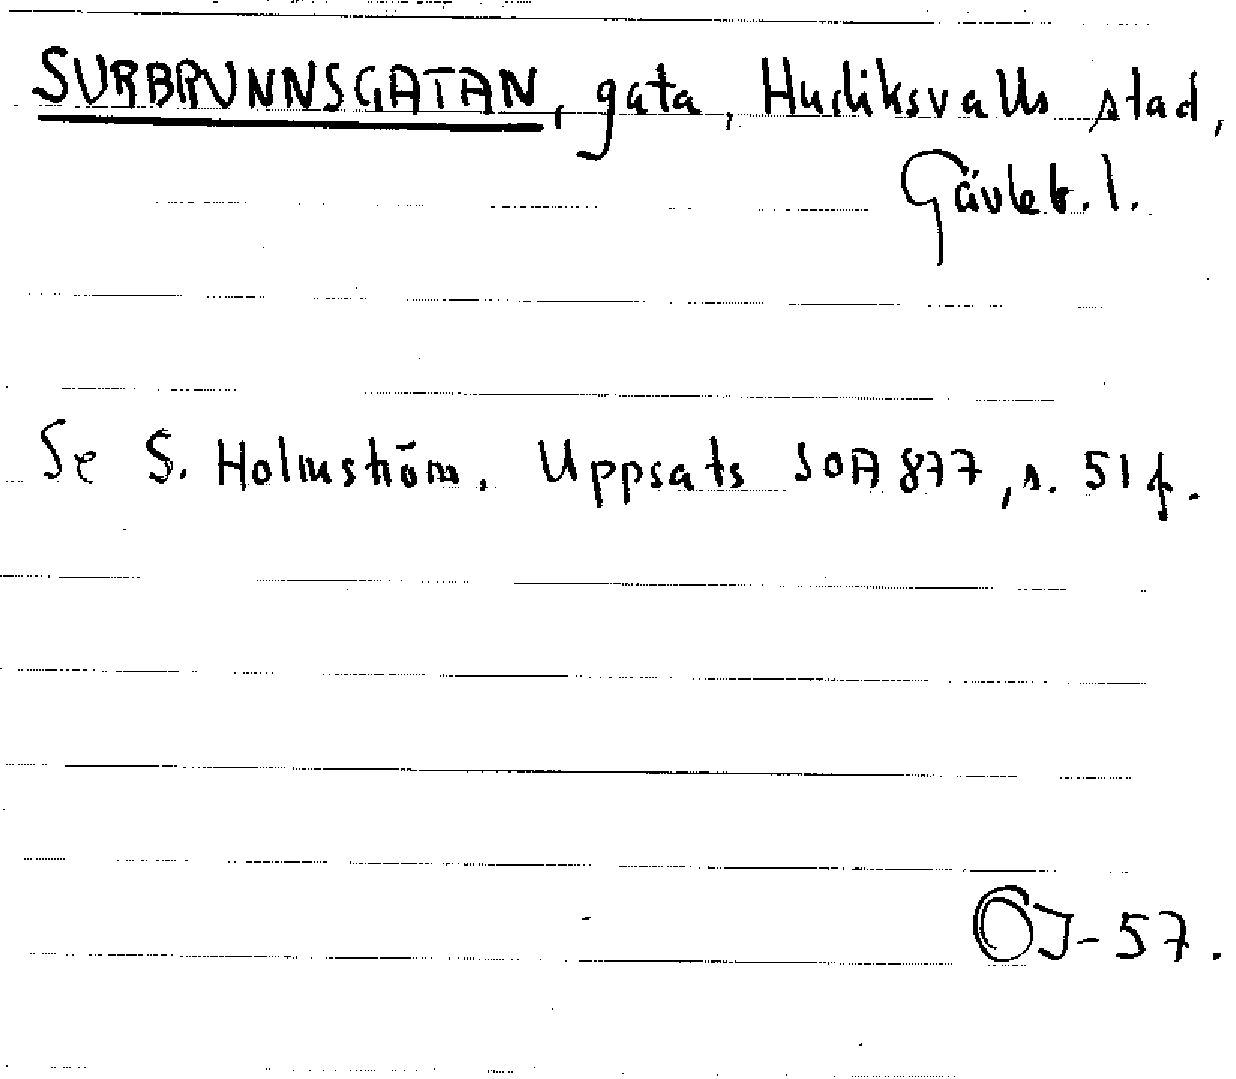 SURBRUNNSGATAN, gata, Hudiksvalls stad,
Gävleb. l.
Se S. Holmström. Uppsats SOA 877, s. 51 f.
OJ-57.